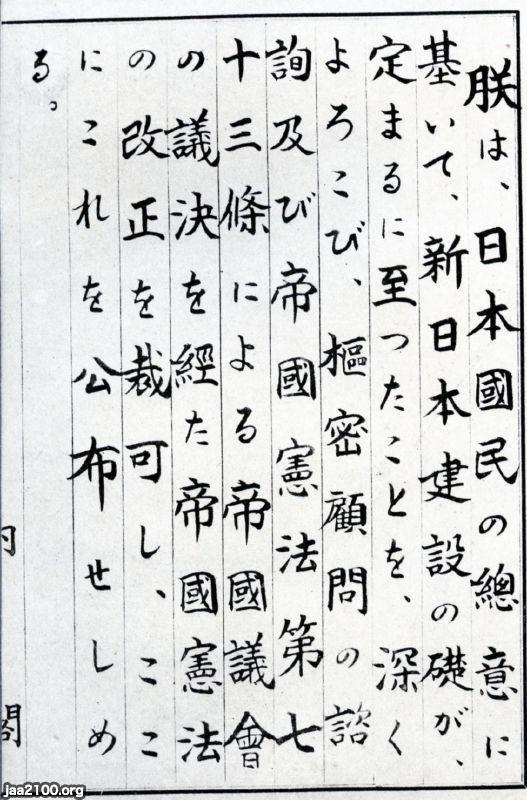 朕は、日本國民の總意に
基いて、新日本建設の礎が、
定まるに至つたことを、深く
よろこび、樞密顧問の諮
詢及び帝國憲法第七
十三條による帝國議會
の議決を経た帝國憲法
の改正を裁可し、ここ
にこれを公布せしめ
る。
内閣
jaa2100.org